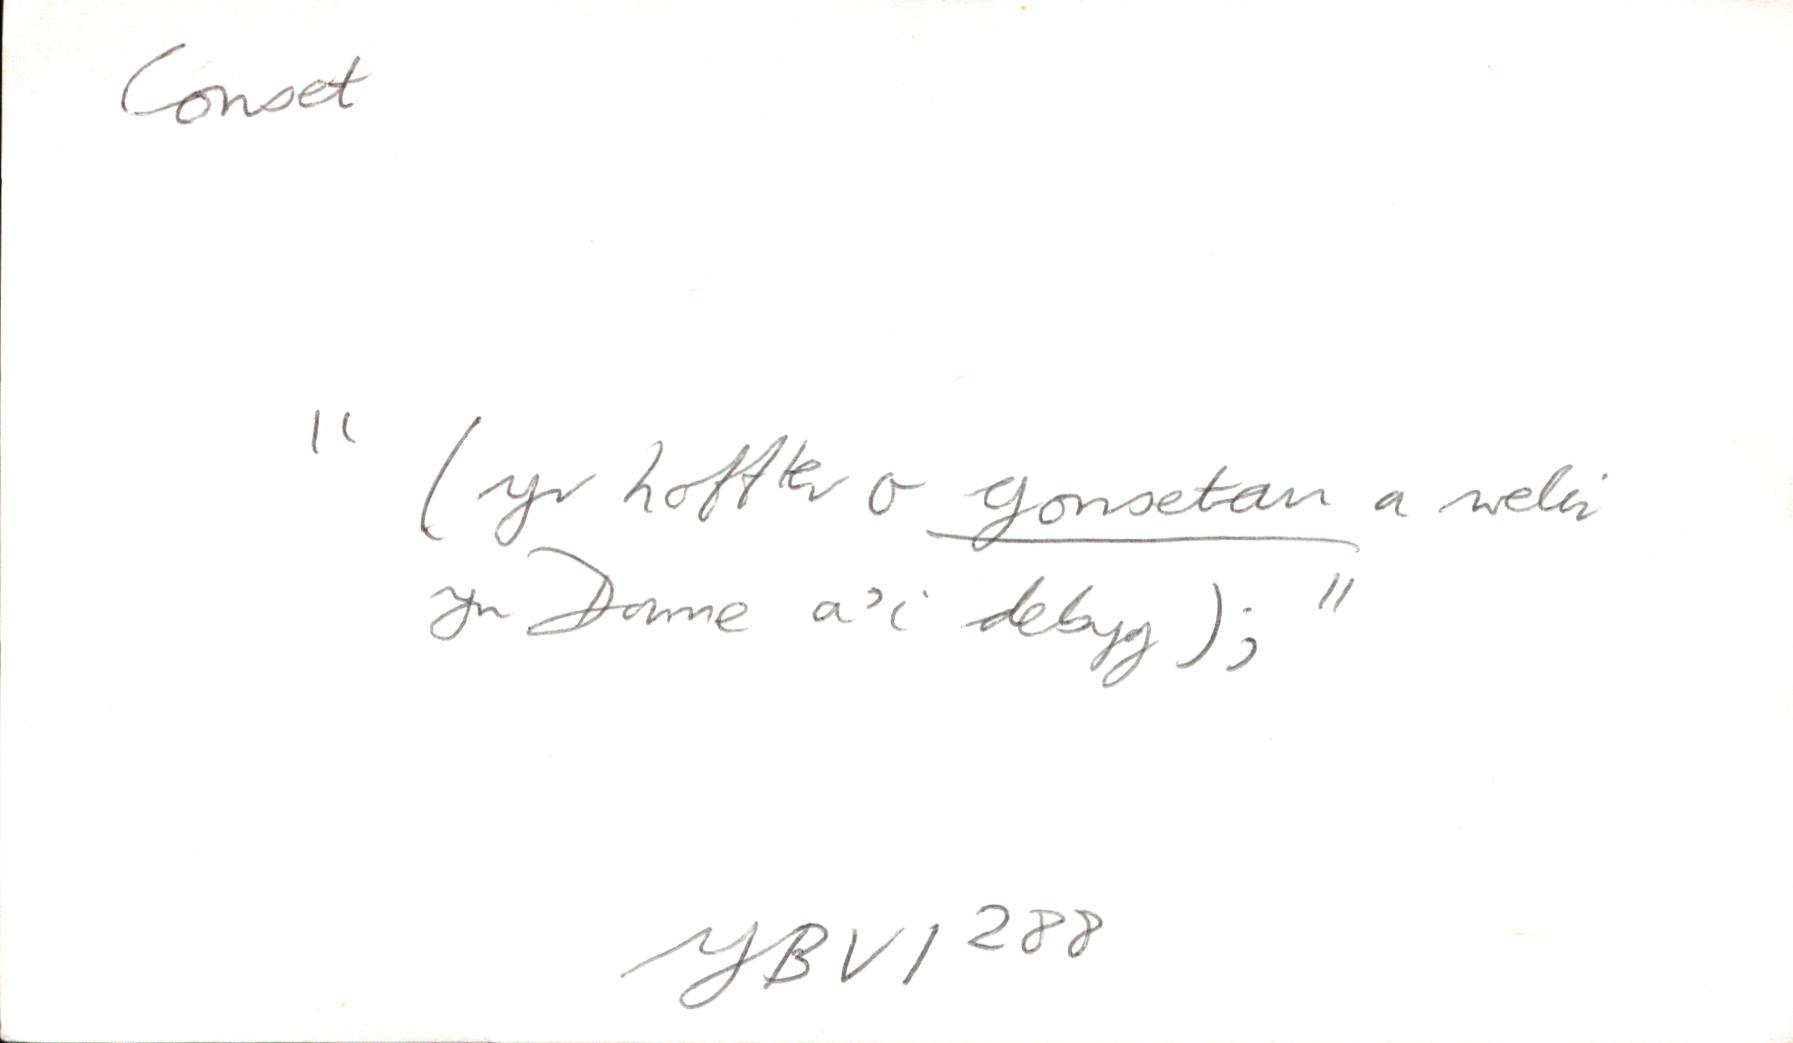 Conset
" (yr hoffter o gonsetau a welir
yn Donne a'i debyg); "
YBVI 288